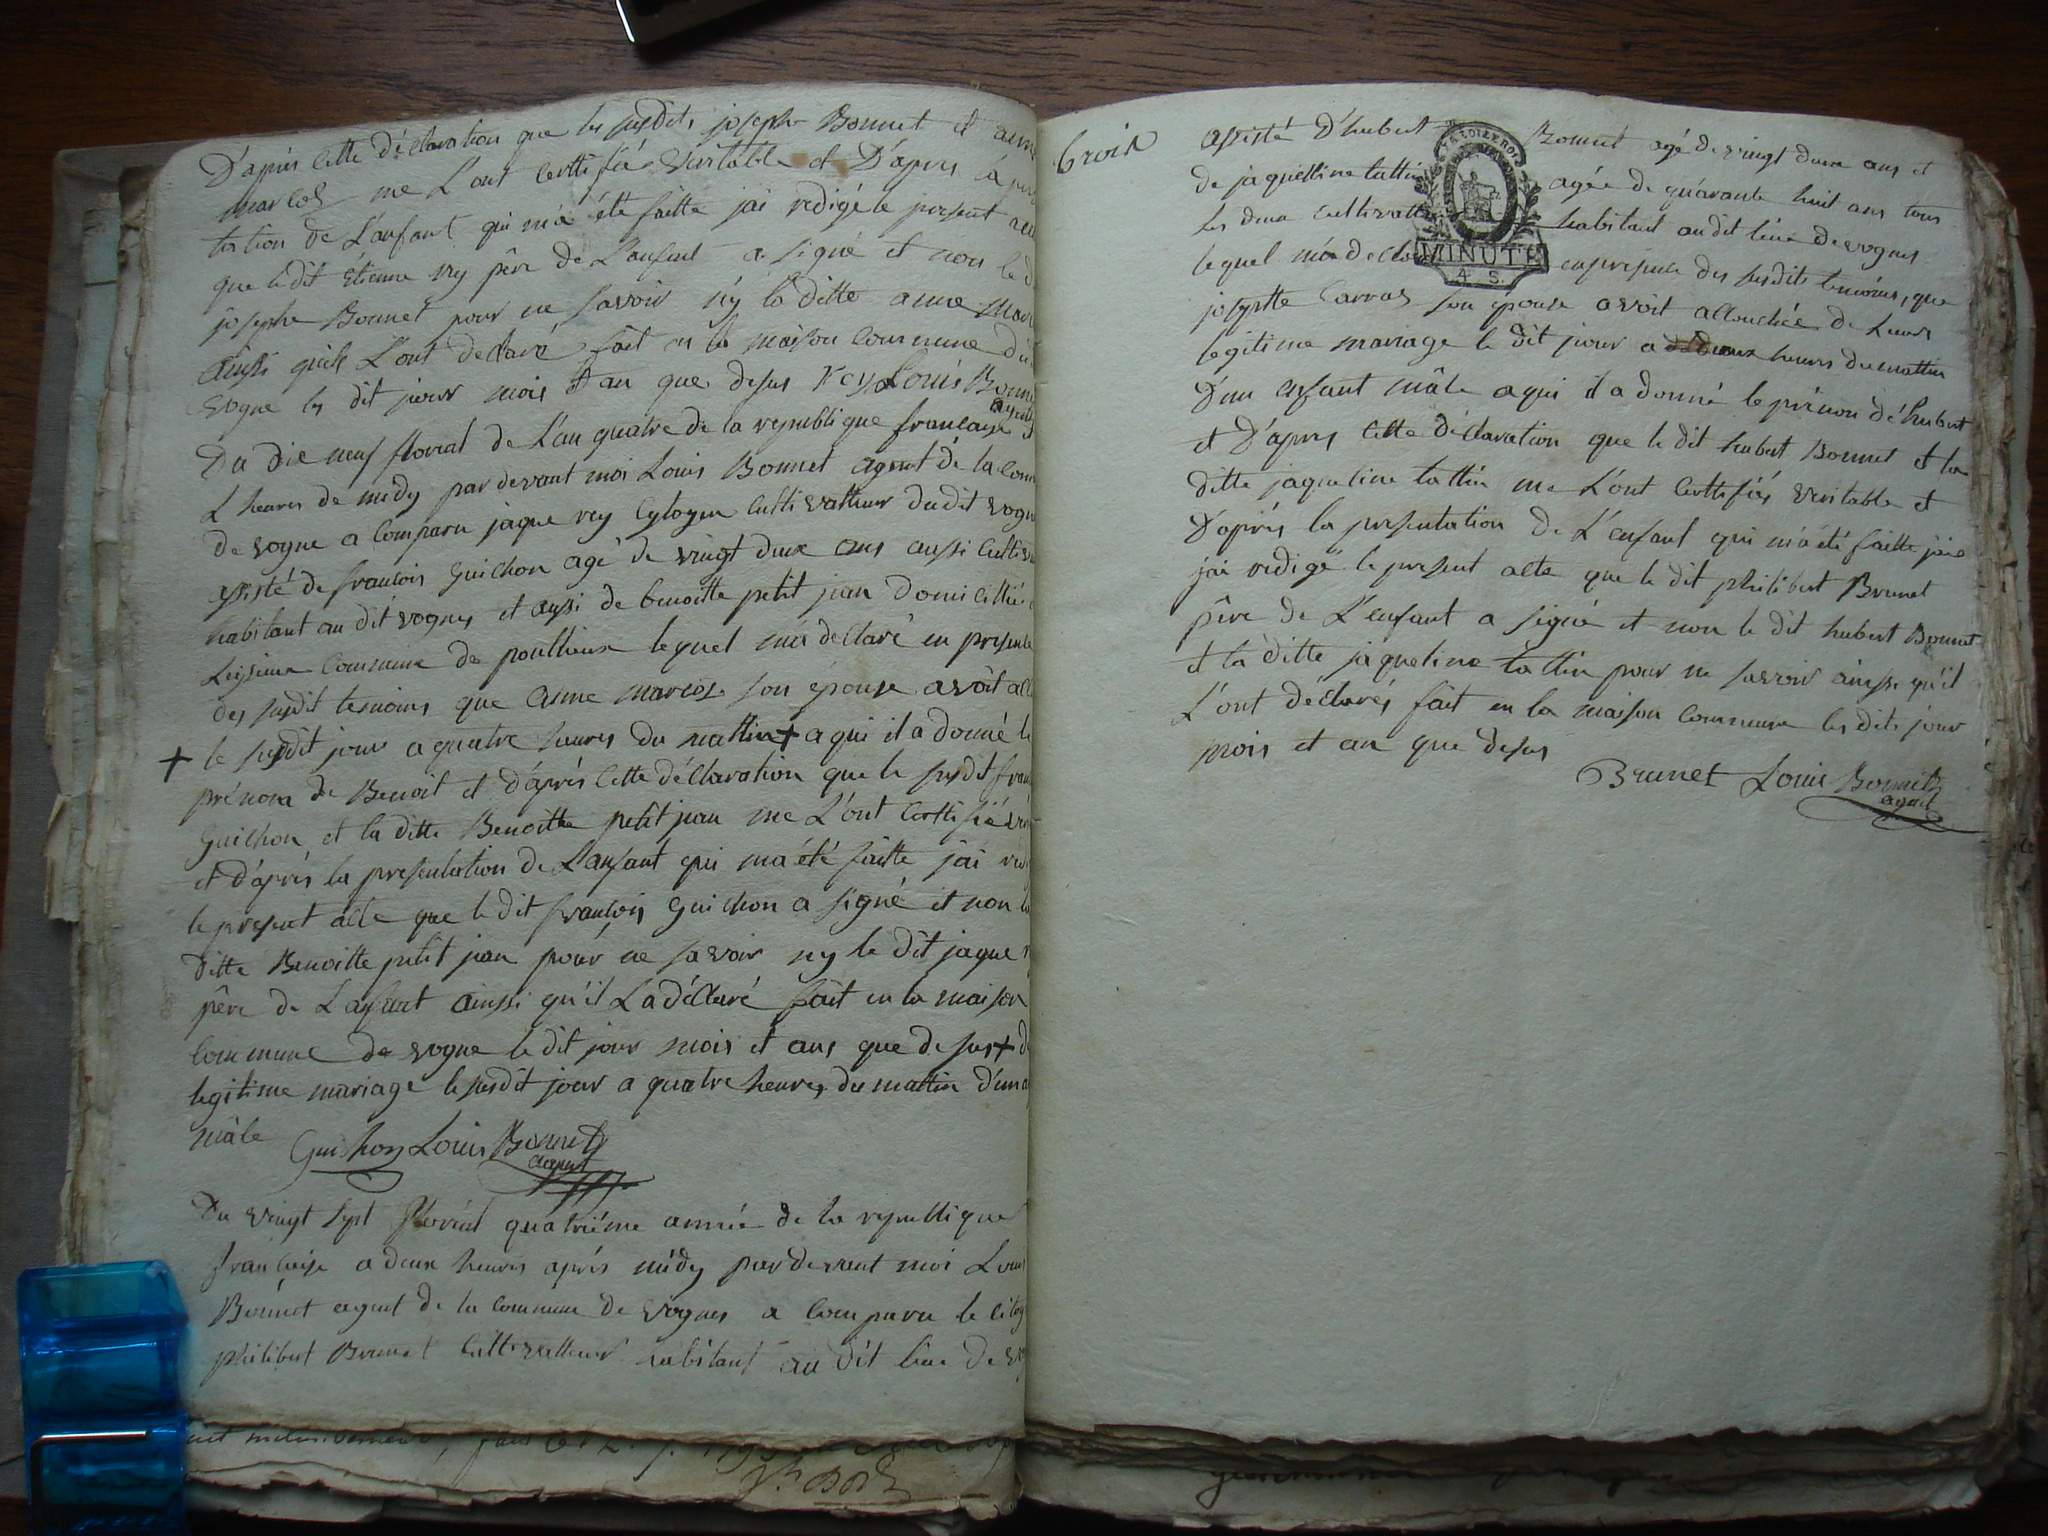 D'apres cette déclaration que les susdits joseph Bonnet et anne
marcoz me l'ont certifié veritable et D'apres la presen
tation de L'anfant qui m'a été faitte jai redigé le present acte
que ledit Etienne rey père de L'anfant a signé et non le d
joseph Bonnet pour ne savoir ny la ditte anne Mar
ainsi quils L'ont déclaré fait en la maison commune du
vogne les dit jour mois et an que desus rey Louis Bonnet
agent
Du dix neuf floreal de L'an quatre de la republique francaise et
L heures de midy par devant moi Louis Bonnet agent de la Com
de vogne a comparu jaque rey Cytoyen cultivatteur dudit vogne
assisté de francois Guichon agé de vingt deux ans aussi cultiva
habitant au dit vognes et aussi de benoitte petit jean domicilliée
commune de poullieux lequel m'a declaré en presence
des susdit temoins que anne marcoz son épouse avoit all
+ le susdit jour a quatre heures du mattin + a qui il a donné le
prénom de Benoit et d'après cette déclaration que le susdit fran
Guichon et la ditte Benoitte petit jean me L'ont certifié véri
et d'après la presentation de L'anfant qui ma été faitte j'ai red
le present acte que le dit françois Guichon a signé et non la
ditte Benoitte petit jean pour ne savoir ny le dit jaque r
père de L'anfant ainsi qu'il La déclaré fait en la maison
commune de vogne le dit jour mois et ans que desus + d
legitime mariage le susdit jour a quatre heures du mattin d'un a
mâle Guichon Louis Bonnet
agent
Du vingt sept floreal quatrième année de la republique
francaise a deux heures après midy par devant moi Louis
Bonnet agent de la commune de vognes a comparu le citoy
philibert Brunet cultivatteur habitant au dit lieu de vo
assisté D'hubert Bonnet agé de vingt deux ans et
de jaquelline tattin agée de quarante huit ans tous
les deux cultivatt habitant au dit lieu de vognes
MINUTE
4. S.
lequel m'a declaré en presence des susdits temoins, que
josephte Carraz son épouse avoit allouchée de Leurs
legitime mariage le dit jour a deux heures du mattin
D'un enfant mâle a qui il a donné le prénom de hubert
et D'apres cette déclaration que le dit hubert Bonnet et la
ditte jaqueline tattin me L'ont certifiés veritable et
D'après la presentation de L'enfant qui m'a été faitte jai
jai redigé le present acte que le dit philibert Brunet
père de L'enfant a signé et non le dit hubert Bonnet
et la ditte jaqueline tattin pour ne savoir ainsi qu'il
L'ont déclarés fait en la maison commune les dits jour
mois et an que desus
Brunet Louis Bonnet
agent